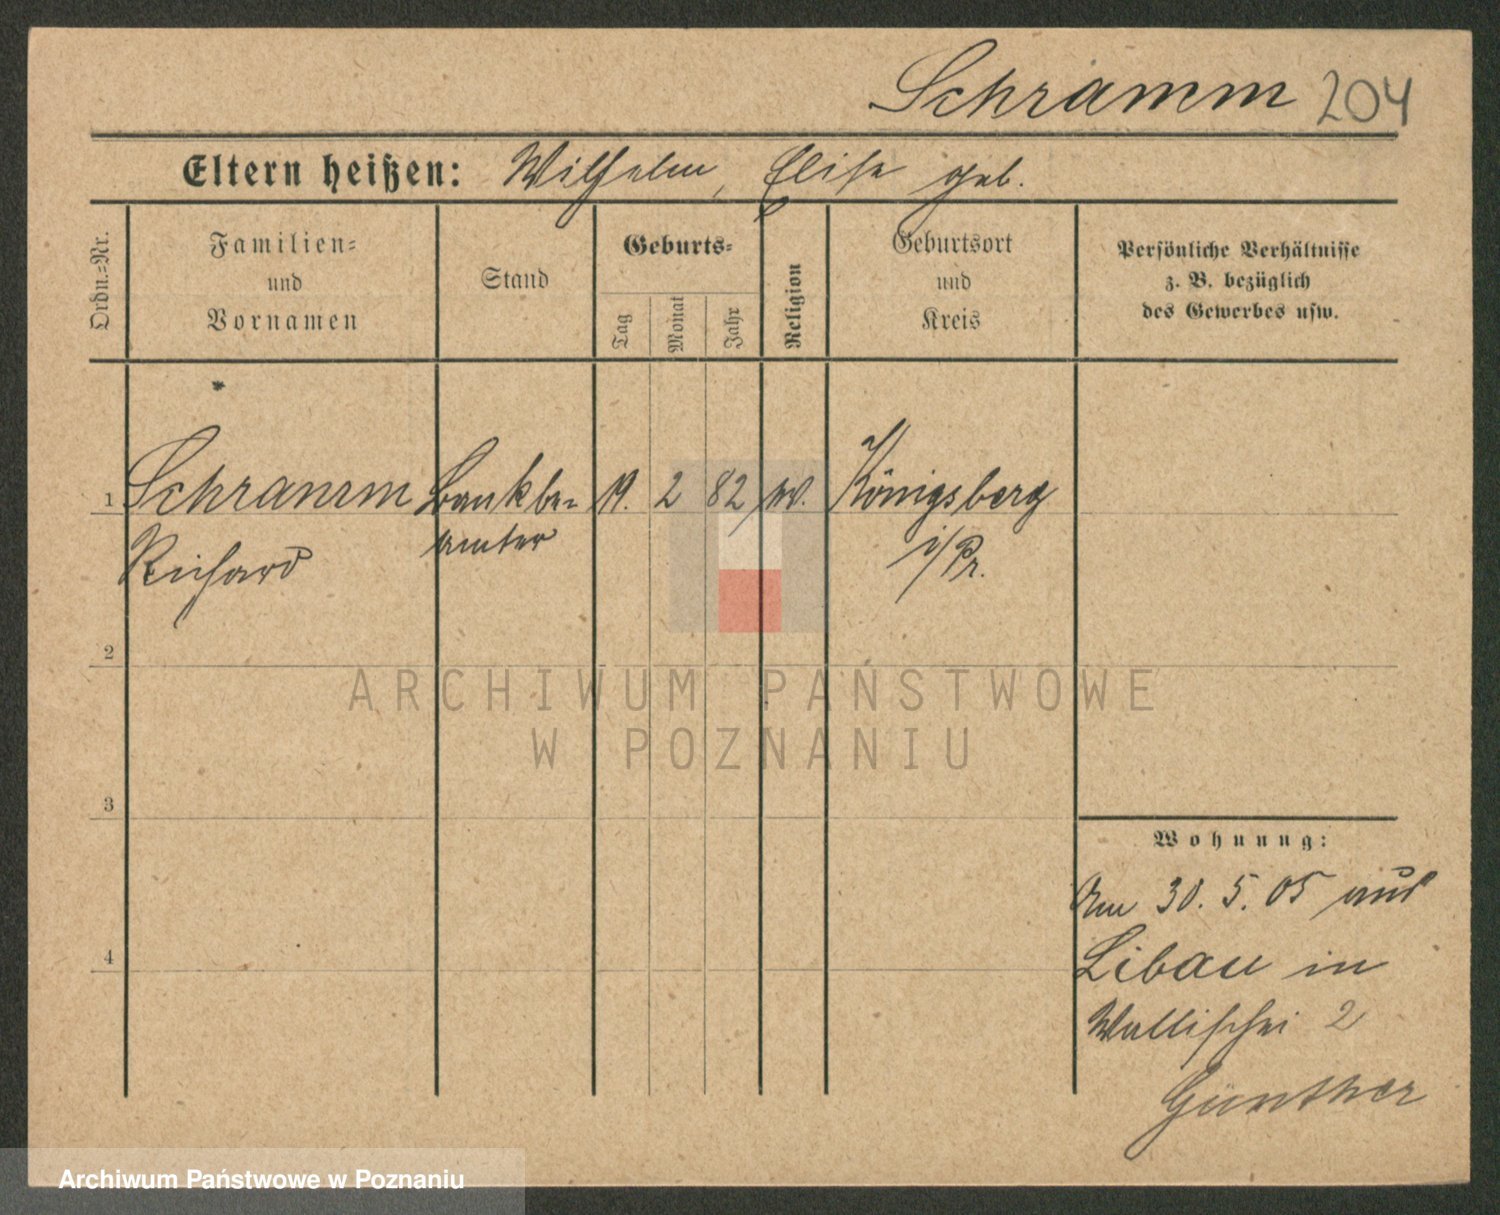 Schramm 204
Eltern heißen: Wilhelm, Elise geb.
Ordn.=Nr.
Familien=
und
Vornamen
Stand
Geburts=
Tag
Monat
Jahr
Religion
Geburtsort
und
Kreis
Persönliche Verhältnisse
z. B. bezüglich
des Gewerbes usw.
1 Schramm Bankbe= 19. 2 82 ev. Königsberg
Richard amter i/Pr.
2
3
4
Wohnung:
Am 30. 5. 05 aus
Libau in
Wallischei 2
Günther
ARCHIWUM PAŃSTWOWE
W POZNANIU
Archiwum Państwowe w Poznaniu